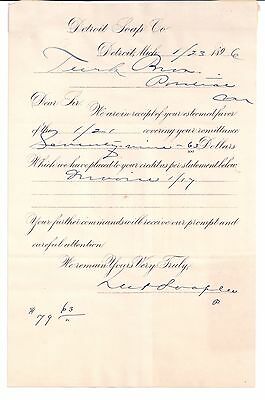 Detroit Soap Co
Detroit, Mich 1/23 1896
Turk Bros.
Pontiac
Dear Sir
We are in receipt of your esteemed favor
of the 1/21 covering your remittance
Seventy nine - 63/100 Dollars
Which we have placed to your credit as per statement below
Invoice 1/17
Your further commands will receive our prompt and
careful attention
We remain Yours Very Truly,
Det Soap Co
$79 63